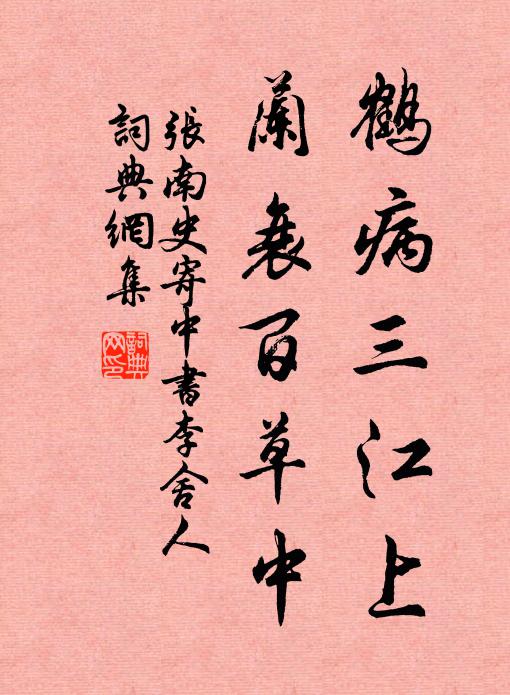 鶴病三江上
蘭衰百草中
張南史寄中書李舍人
詞典網集
詞典網印